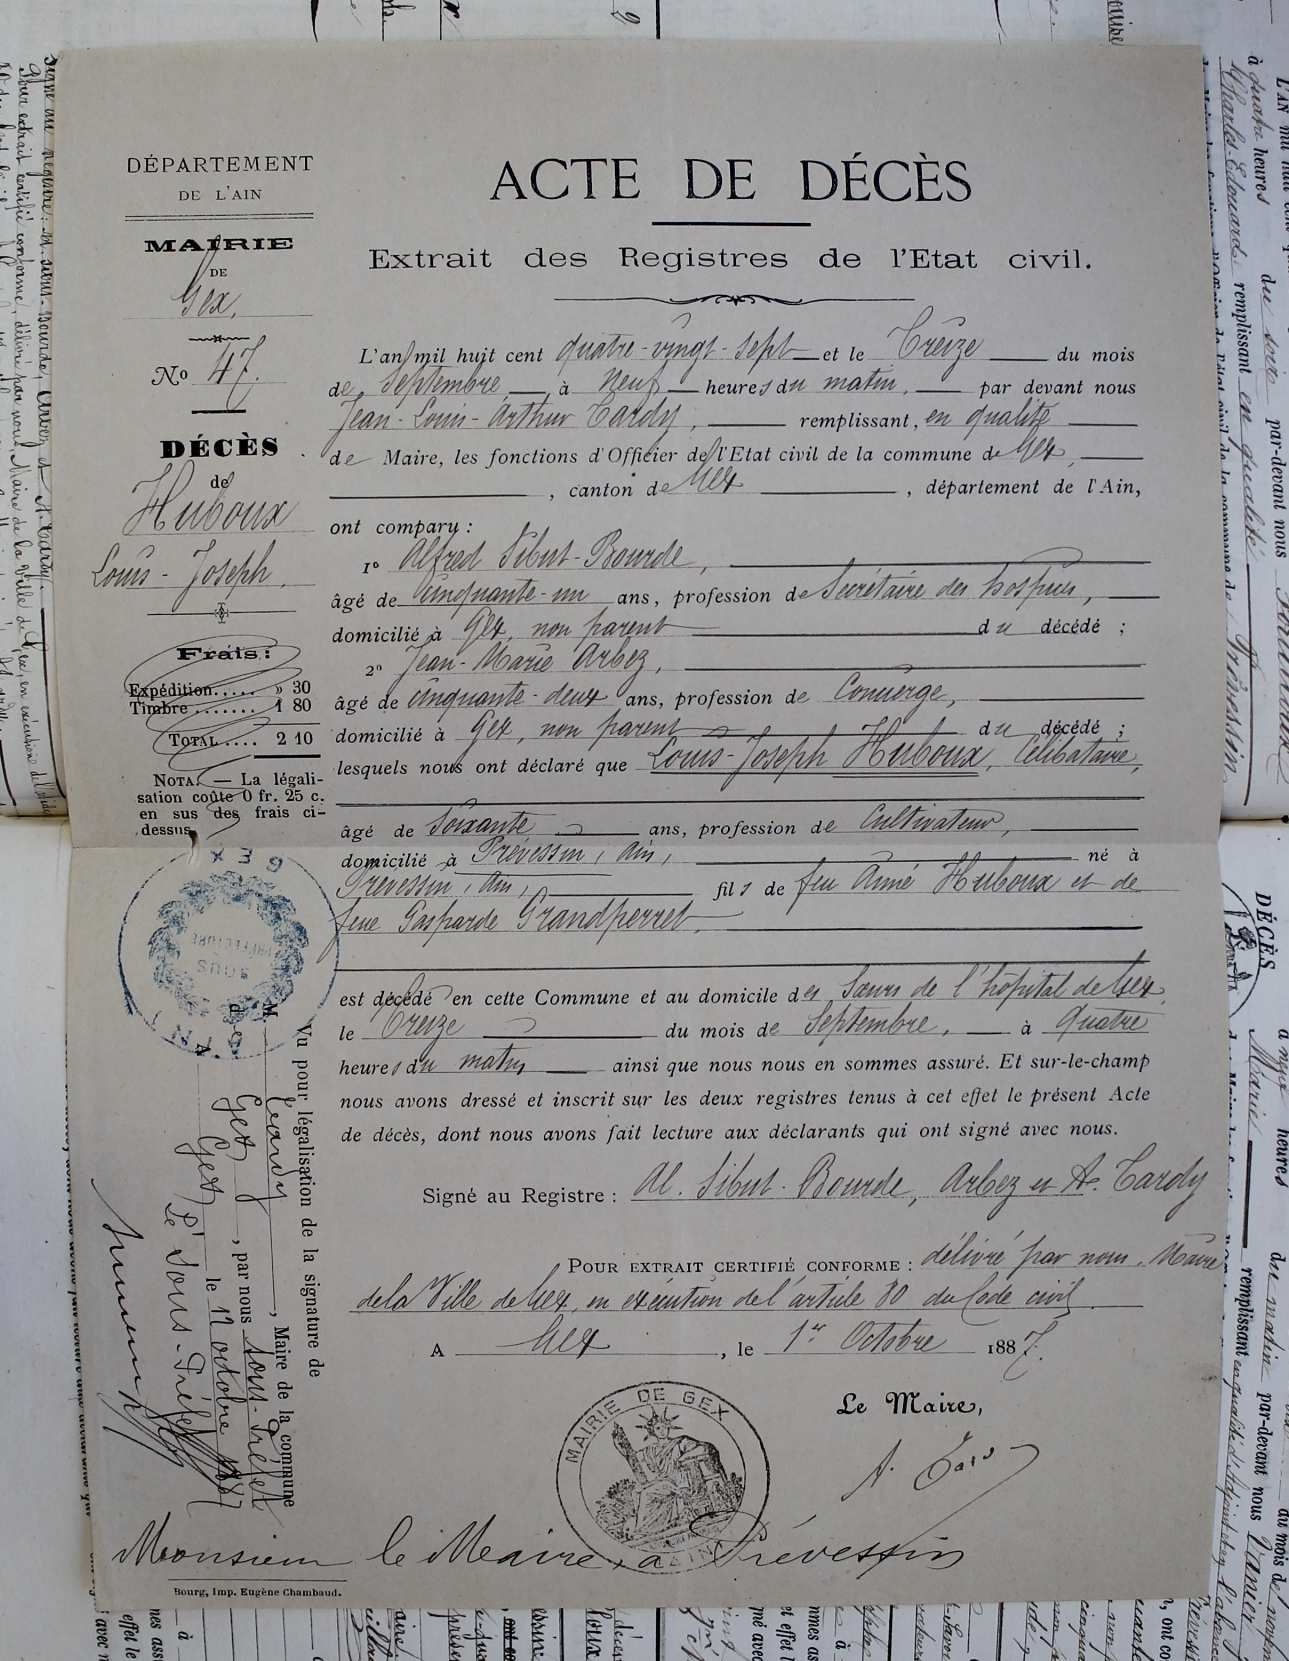 DÉPARTEMENT
DE L'AIN
MAIRIE
DE
Gex,
No 47.
DÉCÈS
de
Huboux
Louis-Joseph.
Frais:
Expédition..... » 30
Timbre....... 1 80
TOTAL.... 2 10
NOTA. — La légali-
sation coûte 0 fr. 25 c.
en sus des frais ci-
dessus
ACTE DE DÉCÈS
Extrait des Registres de l'Etat civil.
L'an mil huit cent quatre-vingt-sept et le Treize du mois
de Septembre à neuf heures du matin, par devant nous
Jean-Louis-Arthur Tardy, remplissant, en qualité
de Maire, les fonctions d'Officier de l'Etat civil de la commune de Gex,
, canton de Gex , département de l'Ain,
ont comparu :
1º Alfred Sibut-Bourde,
âgé de cinquante-un ans, profession de Secrétaire des hospices,
domicilié à Gex, non parent du décédé ;
2º Jean-Marie Arbez,
âgé de cinquante-deux ans, profession de Concierge,
domicilié à Gex, non parent du décédé ;
lesquels nous ont déclaré que Louis-Joseph Huboux, Célibataire,
âgé de Soixante ans, profession de Cultivateur,
domicilié à Prévessin, Ain, né à
Prévessin, Ain, fils de feu Aimé Huboux et de
feue Gasparde Grandperret.
est décédé en cette Commune et au domicile des Sœurs de l'hôpital de Gex
le Treize du mois de Septembre, à Quatre
heures du matin ainsi que nous nous en sommes assuré. Et sur-le-champ
nous avons dressé et inscrit sur les deux registres tenus à cet effet le présent Acte
de décès, dont nous avons fait lecture aux déclarants qui ont signé avec nous.
Signé au Registre : Al. Sibut-Bourde, Arbez et A. Tardy
POUR EXTRAIT CERTIFIÉ CONFORME : délivré par nous, Maire
de la Ville de Gex, en exécution de l'article 80 du Code civil.
A Gex , le 1er Octobre 1887.
Le Maire,
A. Tardy
MAIRIE DE GEX
AIN
Monsieur le Maire, à Prévessin
Bourg, Imp. Eugène Chambaud.
GEX
SOUS
PRÉFECTURE
Vu pour légalisation de la signature de
M. Tardy , Maire de la commune
de Gex , par nous Sous-Préfet
A Gex le 12 octobre 1887
Le Sous-Préfet